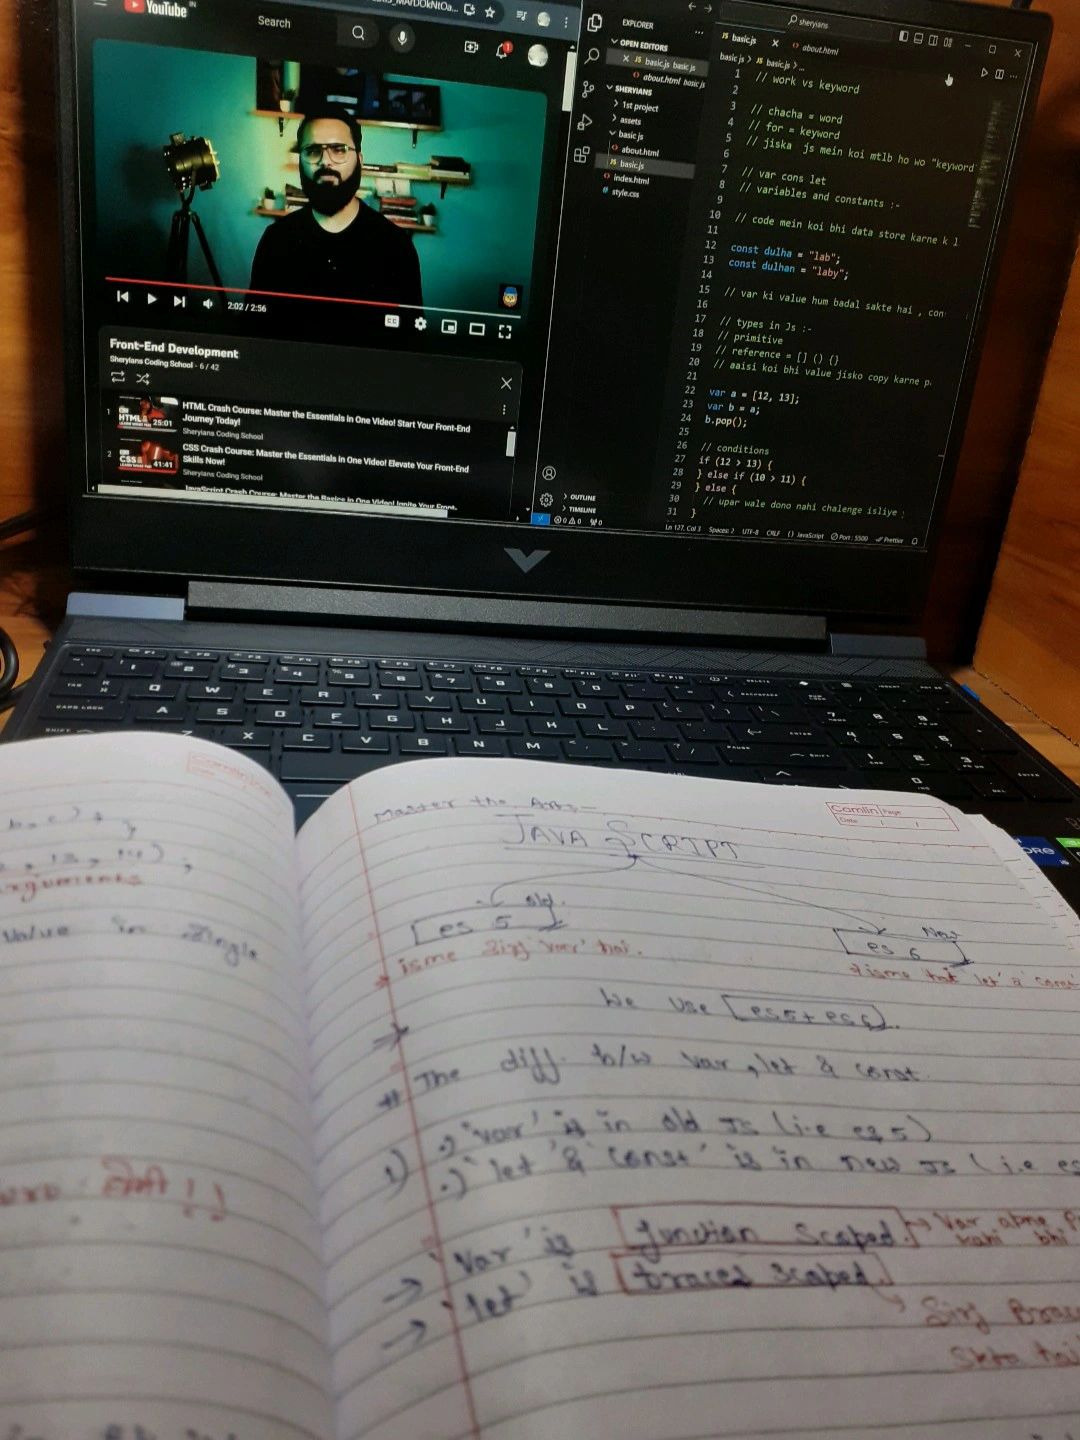 YouTube IN
Search
2:02 / 2:56
CC
Front-End Development
Sheryians Coding School - 6 / 42
1
HTML
25:01
HTML Crash Course: Master the Essentials in One Video! Start Your Front-End
Journey Today!
Sheryians Coding School
2
CSS
41:41
CSS Crash Course: Master the Essentials in One Video! Elevate Your Front-End
Skills Now!
Sheryians Coding School
JavaScript Crash Course: Master the Basics in One Video! Ignite Your Front-
EXPLORER
OPEN EDITORS
JS basic.js basic js
about.html basic js
SHERYIANS
1st project
assets
basic js
about.html
basic.js
index.html
style.css
OUTLINE
TIMELINE
sheryians
JS basic.js
about.html
basic js > JS basic.js > ...
1 // work vs keyword
2
3 // chacha = word
4 // for = keyword
5 // jiska js mein koi mtlb ho wo "keyword
6
7 // var cons let
8 // variables and constants :-
9
10 // code mein koi bhi data store karne k l
11
12 const dulha = "lab";
13 const dulhan = "laby";
14
15 // var ki value hum badal sakte hai , con
16
17 // types in Js :-
18 // primitive
19 // reference = [] () {}
20 // aaisi koi bhi value jisko copy karne p
21
22 var a = [12, 13];
23 var b = a;
24 b.pop();
25
26 // conditions
27 if (12 > 13) {
28 } else if (10 > 11) {
29 } else {
30 // upar wale dono nahi chalenge isliye
31 }
0 0 0
Ln 127, Col 3 Spaces: 2 UTF-8 CRLF {} JavaScript Port : 5500 Prettier
arguments
value in single
Camlin Page
Date / /
Master the Arts-
JAVA SCRIPT
old
es 5
isme sirf 'var' hai.
New
es 6
isme hai let & const
We use es5 + es6.
# The diff. b/w var, let & const.
1) .) 'var' is in old JS (i.e es5)
.) 'let' & 'const' is in new JS (i.e es
→ 'Var' is function Scoped. → Var apne
kahi bhi
→ 'let' is braces Scoped.
Sirf Brac
Skta hai